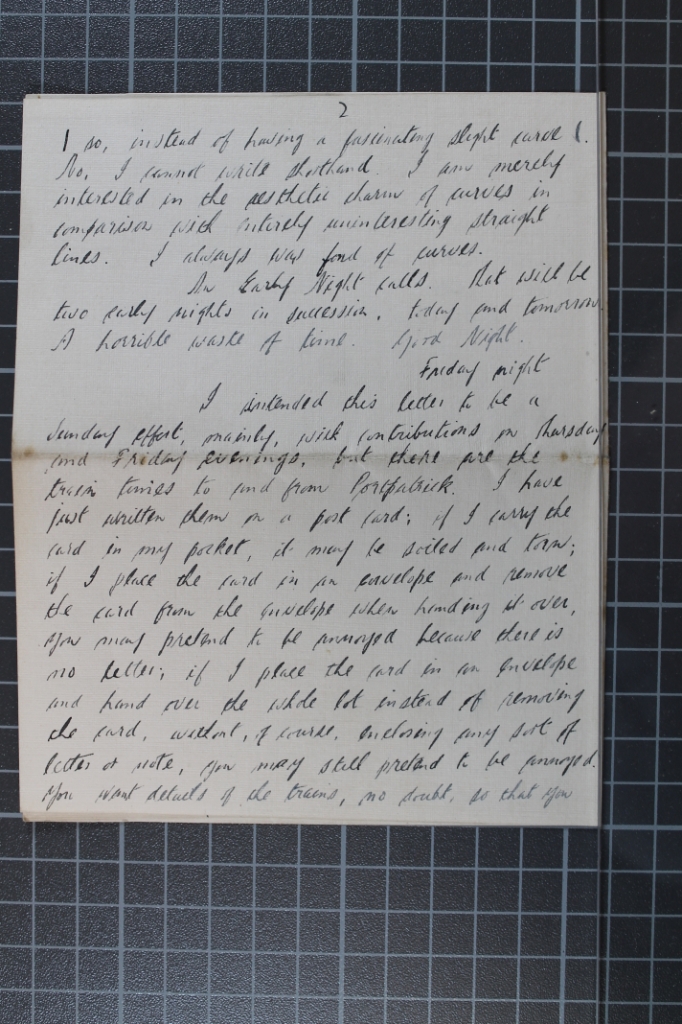 2
| so, instead of having a fascinating slight curve (.
No, I cannot write shorthand. I am merely
interested in the aesthetic charm of curves in
comparison with entirely uninteresting straight
lines. I always was fond of curves.
An Early Night calls. That will be
two early nights in succession, today and tomorrow.
A horrible waste of time. Good Night.
Friday night
I intended this letter to be a
Sunday effort, mainly, with contributions on Thursday
and Friday evenings, but there are the
train times to and from Portpatrick. I have
just written them on a post card; if I carry the
card in my pocket, it may be soiled and torn;
if I place the card in an envelope and remove
the card from the envelope when handing it over,
you may pretend to be annoyed because there is
no letter; if I place the card in an envelope
and hand over the whole lot instead of removing
the card, without, of course, enclosing any sort of
letter or note, you may still pretend to be annoyed.
You want details of the trains, no doubt, so that you